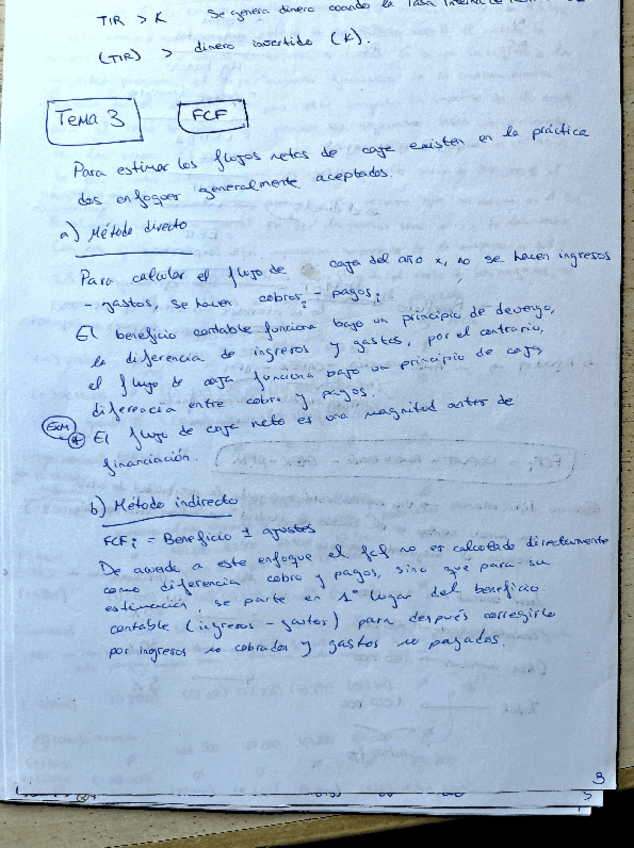 TIR > K Se genera dinero cuando la Tasa Interna de
(TIR) > dinero invertido (K).
Tema 3 FCF
Para estimar los flujos netos de caja existen en la práctica
dos enfoques generalmente aceptados.
a) Método directo
Para calcular el flujo de caja del año x, no se hacen ingresos
- gastos, se hacen cobros; - pagos;
El beneficio contable funciona bajo un principio de devengo,
la diferencia de ingresos y gastos, por el contrario,
el flujo de caja funciona bajo un principio de caja,
diferencia entre cobro y pagos.
EXM * El flujo de caja neto es una magnitud antes de
financiación.
b) Método indirecto
FCFi = Beneficio ± ajustes
De acuerdo a este enfoque el fcf no es calculado directamente
como diferencia cobro y pagos, sino que para su
estimación, se parte en 1º lugar del beneficio
contable (ingresos - gastos) para después corregirlo
por ingresos no cobrados y gastos no pagados.
3
5